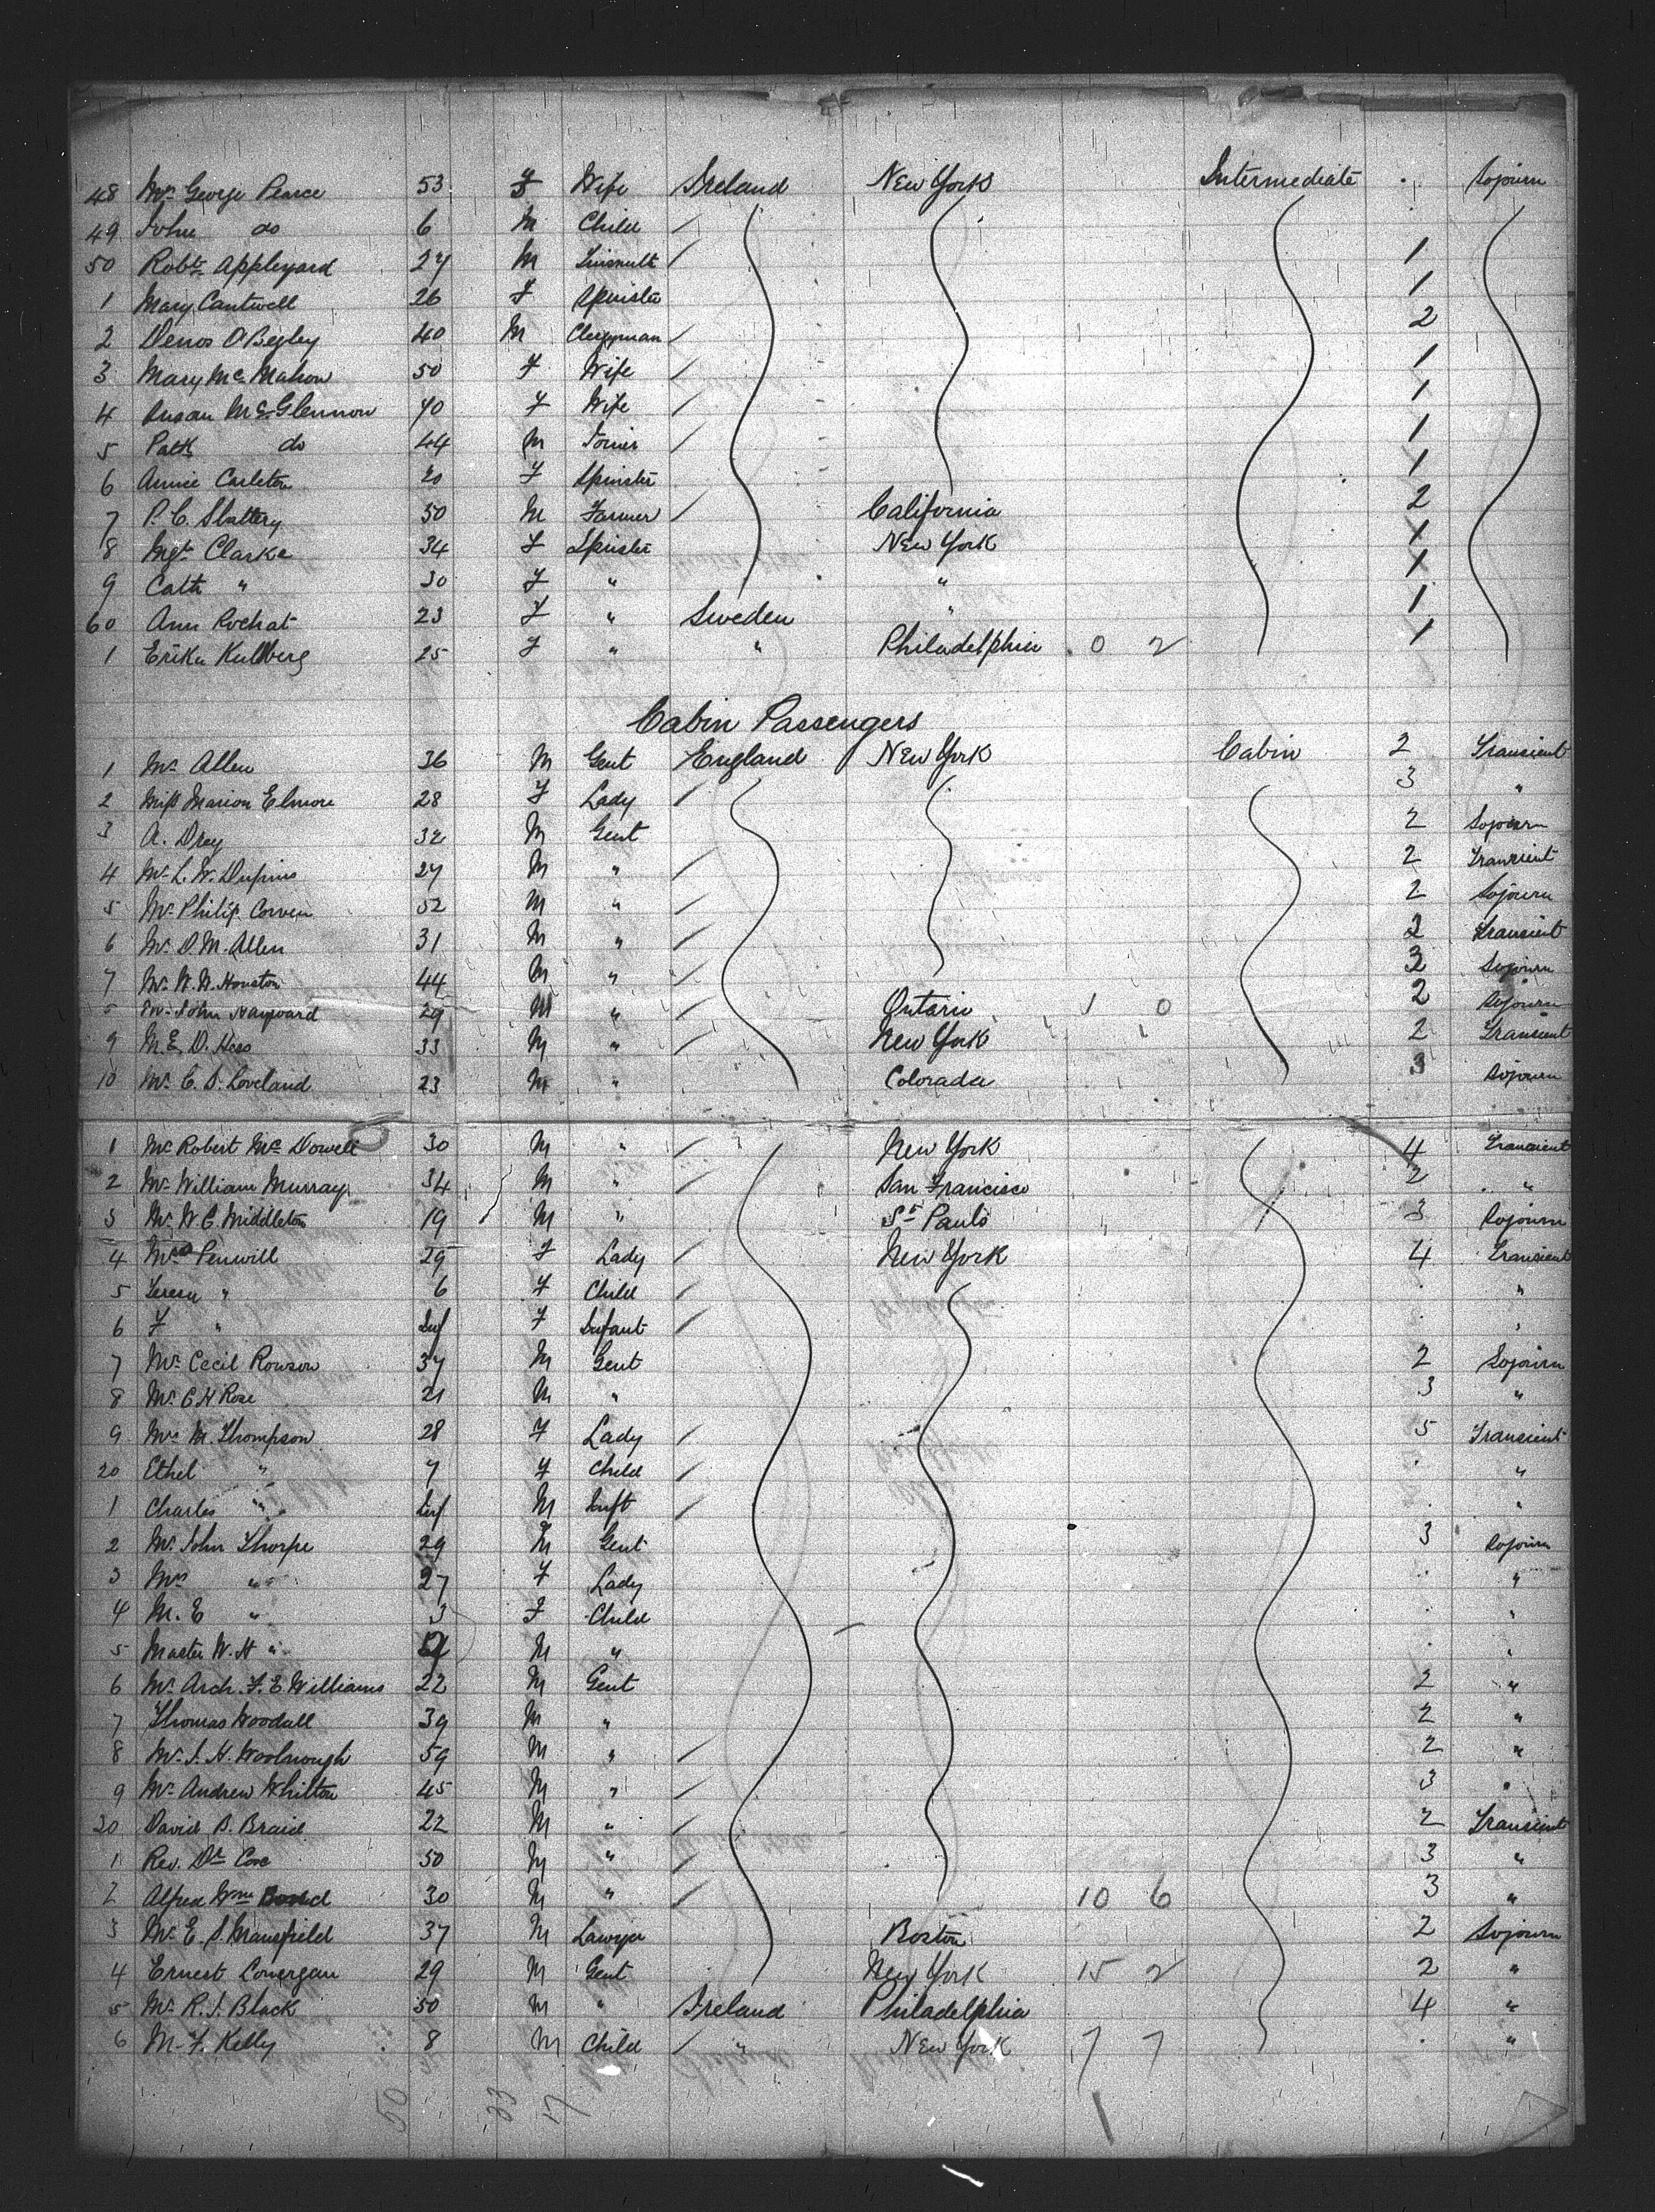 48 Mrs George Pearce 53 F Wife Ireland New York Intermediate . Sojourn
49 John do 6 M Child /
50 Robt Appleyard 27 M / 1
1 Mary Cantwell 26 F Spinster 1
2 Denos O'Begley 40 M Clergyman / 2
3 Mary McMahon 50 F Wife / 1
4 Susan McGlennon 40 F Wife / 1
5 Patk do 44 M Joiner / 1
6 Annie Carleton 20 F Spinster 1
7 P. C. Slattery 50 M Farmer / California 2
8 Mgt Clarke 34 F Spinster New York 1
9 Cath " 30 F " " 1
60 Ann Rochat 23 F " Sweden " 1
1 Erika Kullberg 25 F " " Philadelphia 0 2 1
Cabin Passengers
1 Mr Allen 36 M Gent England New York Cabin 2 Transient
2 Miss Marion Elmore 28 F Lady / 3 "
3 A. Drey 32 M Gent 2 Sojourn
4 Mr L. W. 27 M " / 2 Transient
5 Mr Philip Corven 52 M " / 2 Sojourn
6 Mr D. M. Allen 31 M " / 2 Transient
7 Mr W. W. Houston 44 M " / 3 Sojourn
8 Mr John Hayward 29 M " / Ontario 1 0 2 Sojourn
9 M. E. D. Hess 33 M " / New York 2 Transient
10 Mr C. S. Loveland 23 M " Colorada 3 Sojourn
1 Mr Robert McDowell 30 M " / New York 4 Transient
2 Mr William Murray 34 M " / San Francisco 2 "
3 Mr W. C. Middleton 19 M " St Pauls 3 Sojourn
4 Mrs Penwill 29 F Lady / New York 4 Transient
5 Teresa " 6 F Child / . "
6 F " Inf F Infant / . "
7 Mr Cecil Rowson 37 M Gent 2 Sojourn
8 Mr C H Rose 21 M " 3 "
9 Mrs M. Thompson 28 F Lady / 5 Transient
20 Ethel " 7 F Child / . "
1 Charles " Inf M Inft / . "
2 Mr John Thorpe 29 M Gent 3 Sojourn
3 Mrs " 27 F Lady . "
4 M. E " 3 F Child . "
5 Master W. H " M " . "
6 Mr Arch. F. E. Williams 22 M Gent 2 "
7 Thomas Woodall 39 M " 2 "
8 Mr J. H. Woolnough 59 M " / 2 "
9 Mr Andrew Whitton 45 M " / 3 "
30 David B. Braid 22 M " / 2 Transient
1 Rev. Dr Coxe 50 M " / 3 "
2 Alfred Wm 30 M " / 10 6 3 "
3 Mr E. S. Mansfield 37 M Lawyer Boston 2 Sojourn
4 Ernest Lonergan 29 M Gent New York 15 2 2 "
5 Mr R. J. Black 50 M " Ireland Philadelphia 4 "
6 M. F. Kelly 8 M Child / " New York 7 7 . "
50 33 17 1